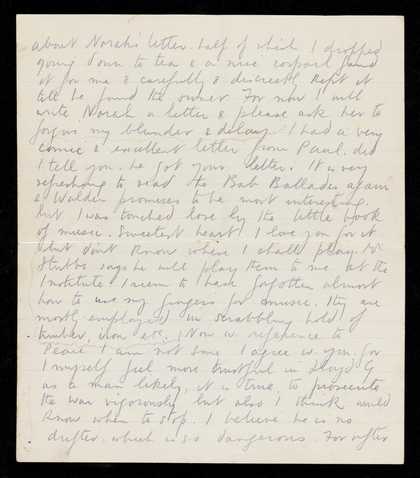 about Norah's letter. half of which I dropped
going down to tea & a nice corporal found
it for me & carefully & discreetly kept it
till he found the owner For now I will
write Norah a letter & please ask her to
forgive my blunder & delay. I had a very
comic & excellent letter from Paul. did
I tell you. he got your letter. It is very
refreshing to read the Bab Ballades again
& Walden promises to be most interesting.
but I was touched by the little book
of music. Sweetest heart I love you for it
but don't know where I shall play. Mr
Stubbs says he will play them to me at the
Institute I seem to have forgotten almost
how to use my fingers for music. they are
mostly employed in scrabbling hold of
timber, iron etc. Now in reference to
Peace I am not sure I agree w. you. for
I myself feel more trustful in Lloyd G
as a man likely, it is true, to prosecute
the war vigorously but also I think would
know when to stop. I believe he is no
drifter. which is so dangerous. For after